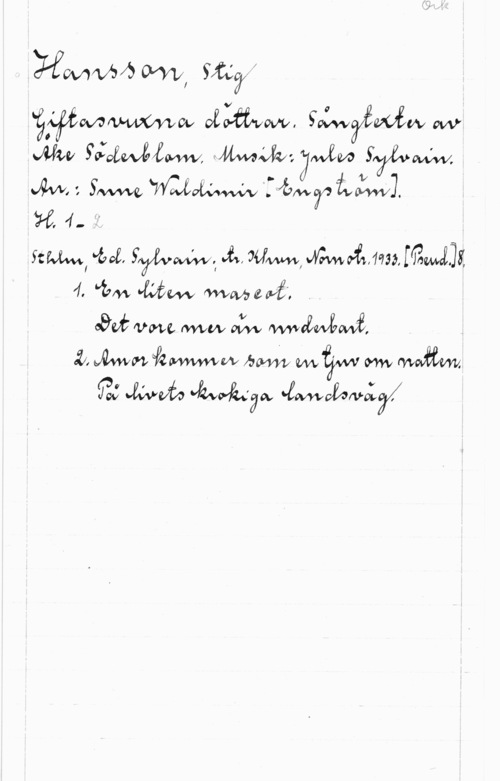 Ork
Hansson, Stig
Giftasvuxna döttrar. Sångtexter av
Åke Söderblom. Musik: Jules Sylvain.
Arr.: Sune Waldimir [Engström].
H. 1- 2
Sthlm, Ed. Sylvain; tr. Khvn, Nornotr. 1933. [Pseud.] 8.
1. En liten mascot.
Det vore mer än underbart.
2. Amor kommer som en tjuv om natten.
På livets krokiga landsväg.